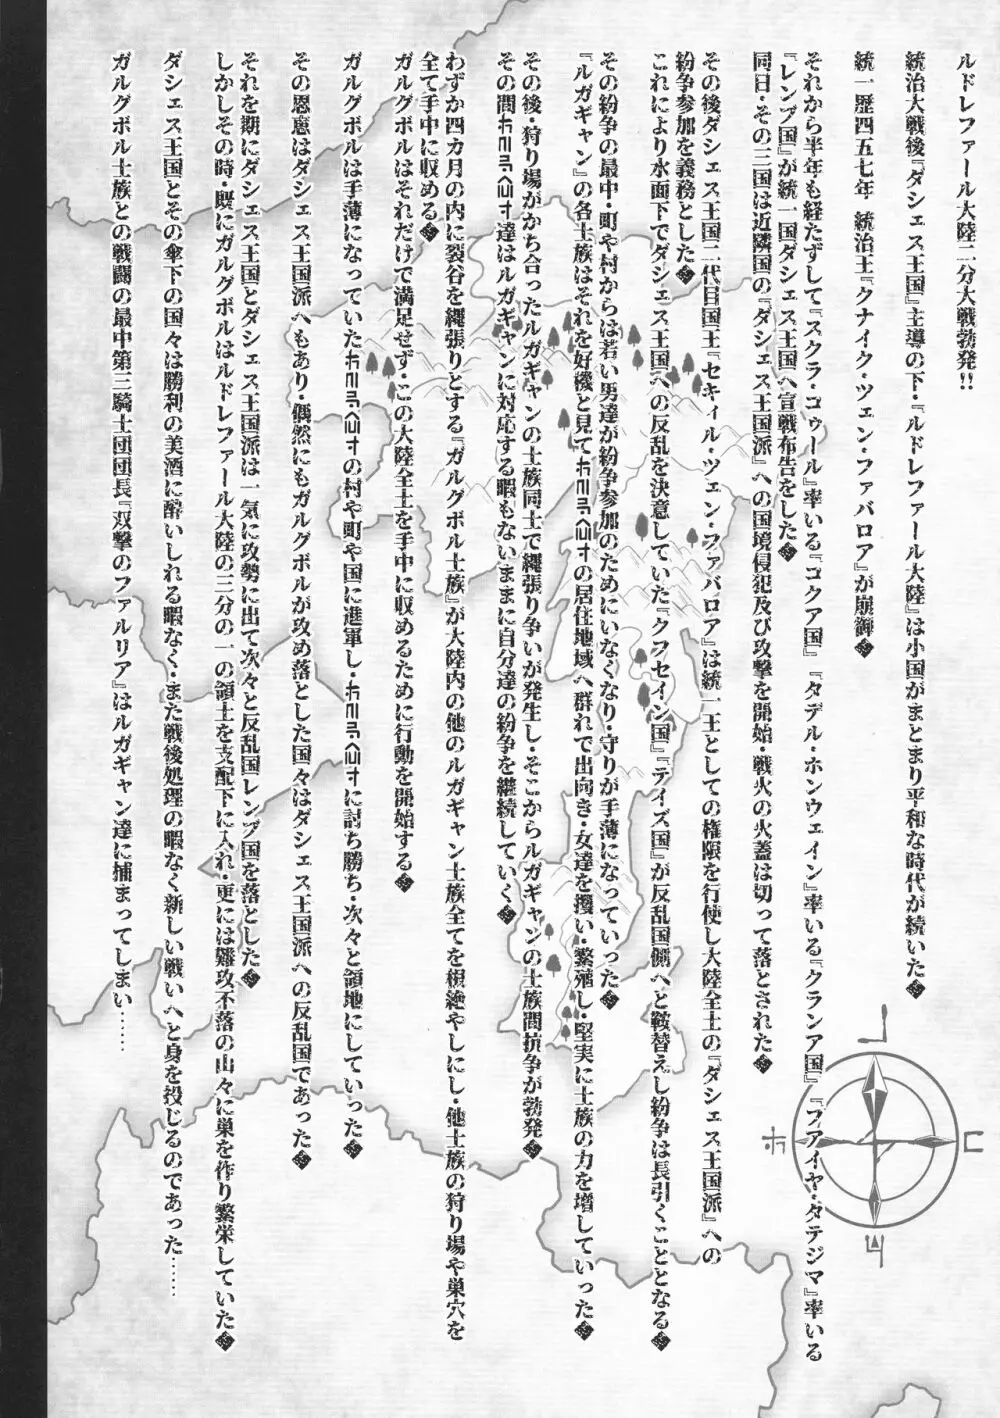 ルドレファール大陸二分大戦勃発!!
統治大戦後『ダシェス王国』主導の下・『ルドレファール大陸』は小国がまとまり平和な時代が続いた◆
統一歴四五七年 統治王『クナイク・ツェン・ファバロア』が崩御◆
それから半年も経たずして『スクラ・ゴゥール』率いる『コクア国』『タデル・ホンウェイン』率いる『クランア国』『フアイヤ・タテジマ』率いる
『レンブ国』が統一国ダシェス王国へ宣戦布告をした◆
同日・その三国は近隣国の『ダシェス王国派』への国境侵犯及び攻撃を開始・戦火の火蓋は切って落とされた◆
その後ダシェス王国二代目国王『セキィル・ツェン・ファバロア』は統一王としての権限を行使し大陸全土の『ダシェス王国派』への
紛争参加を義務とした◆
これにより水面下でダシェス王国への反乱を決意していた『クフセイン国』『テイズ国』が反乱国側へと鞍替えし紛争は長引くこととなる◆
その紛争の最中・町や村からは若い男達が紛争参加のためにいなくなり・守りが手薄になっていった◆
『ルガギャン』の各士族はそれを好機と見て の居住地域へ群れで出向き・女達を攫い・繁殖し・堅実に士族の力を増していった◆
その後・狩り場がかち合ったルガギャンの士族同士で縄張り争いが発生し・そこからルガギャンの士族間抗争が勃発◆
その間 達はルガギャンに対応する暇もないままに自分達の紛争を継続していく◆
わずか四カ月の内に裂谷を縄張りとする『ガルグボル士族』が大陸内の他のルガギャン士族全てを根絶やしにし・他士族の狩り場や巣穴を
全て手中に収める◆
ガルグボルはそれだけで満足せず・この大陸全土を手中に収めるために行動を開始する◆
ガルグボルは手薄になっていた の村や町や国に進軍し・ に討ち勝ち・次々と領地にしていった◆
その恩恵はダシェス王国派へもあり・偶然にもガルグボルが攻め落とした国々はダシェス王国派への反乱国であった◆
それを期にダシェス王国とダシェス王国派は一気に攻勢に出て次々と反乱国レンブ国を落とした◆
しかしその時・既にガルグボルはルドレファール大陸の三分の一の領土を支配下に入れ・更には難攻不落の山々に巣を作り繁栄していた◆
ダシェス王国とその傘下の国々は勝利の美酒に酔いしれる暇なく・また戦後処理の暇なく新しい戦いへと身を投じるのであった……
ガルグボル士族との戦闘の最中第三騎士団団長『双撃のファルリア』はルガギャン達に捕まってしまい……